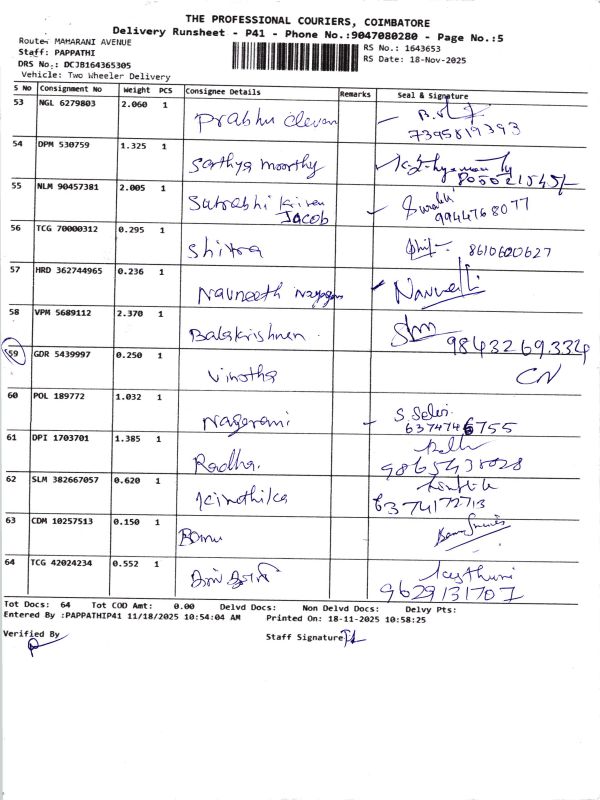 THE PROFESSIONAL COURIERS, COIMBATORE
Delivery Runsheet - P41 - Phone No.:9047080280 - Page No.:5
Route: MAHARANI AVENUE
Staff: PAPPATHI
DRS No.: DCJB164365305
Vehicle: Two Wheeler Delivery
RS No.: 1643653
RS Date: 18-Nov-2025
S No Consignment No Weight PCS Consignee Details Remarks Seal & Signature
53 NGL 6279803 2.060 1 Prabhu
7395819393
54 DPM 530759 1.325 1 Sathya moorthy
55 NLM 90457381 2.005 1 Surabhi Kiran
Jacob
9944768077
56 TCG 70000312 0.295 1 Shitra 8610600627
57 HRD 362744965 0.236 1 Navneeth
58 VPM 5689112 2.370 1 Balakrishnan
9843269334
59 GDR 5439997 0.250 1 Vinotha CN
60 POL 189772 1.032 1 Nagarani S. Selvi
6374746755
61 DPI 1703701 1.385 1 Radha.
62 SLM 382667057 0.620 1 Kiruthika
6374172713
63 CDM 10257513 0.150 1
64 TCG 42024234 0.552 1 Kasthuri
9629131707
Tot Docs: 64 Tot COD Amt: 0.00 Delvd Docs: Non Delvd Docs: Delvy Pts:
Entered By :PAPPATHIP41 11/18/2025 10:54:04 AM Printed On: 18-11-2025 10:58:25
Verified By Staff Signature